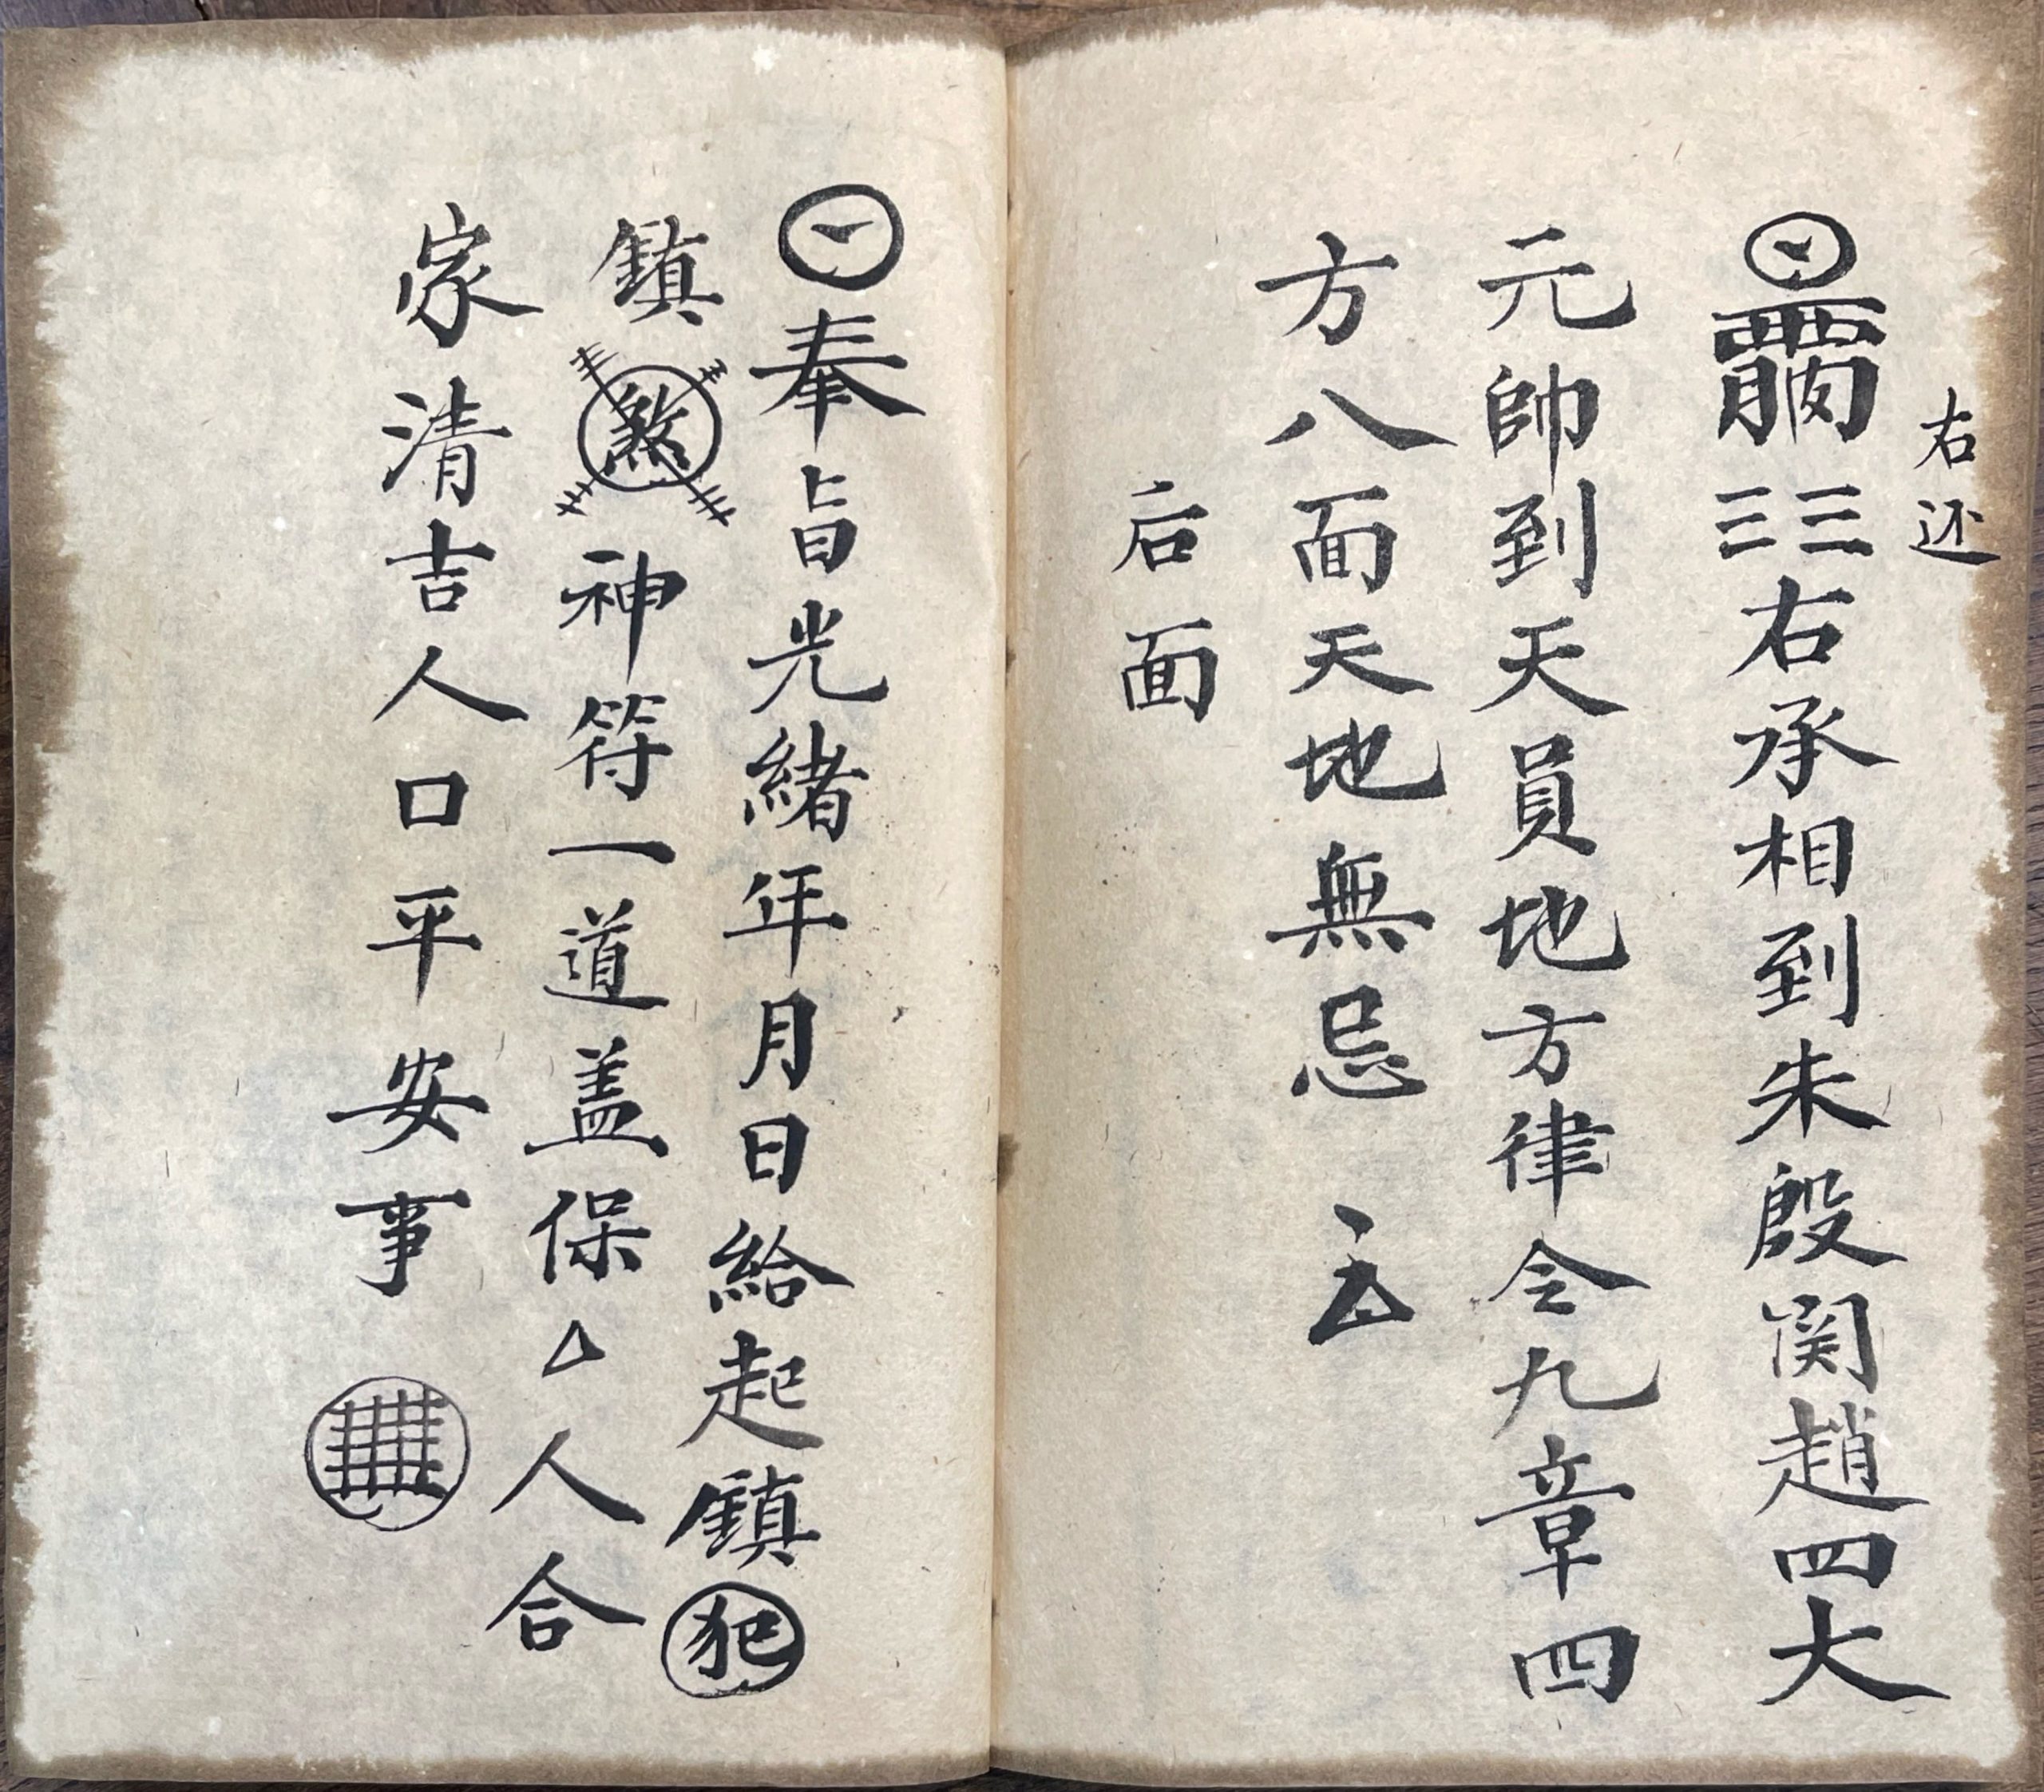 右还
右承相到朱殷関趙四大
元帥到天員地方律令九章四
方八面天地無忌
后面
奉旨光緒年月日給起鎮犯
鎮煞神符一道盖保厶人合
家清吉人口平安事